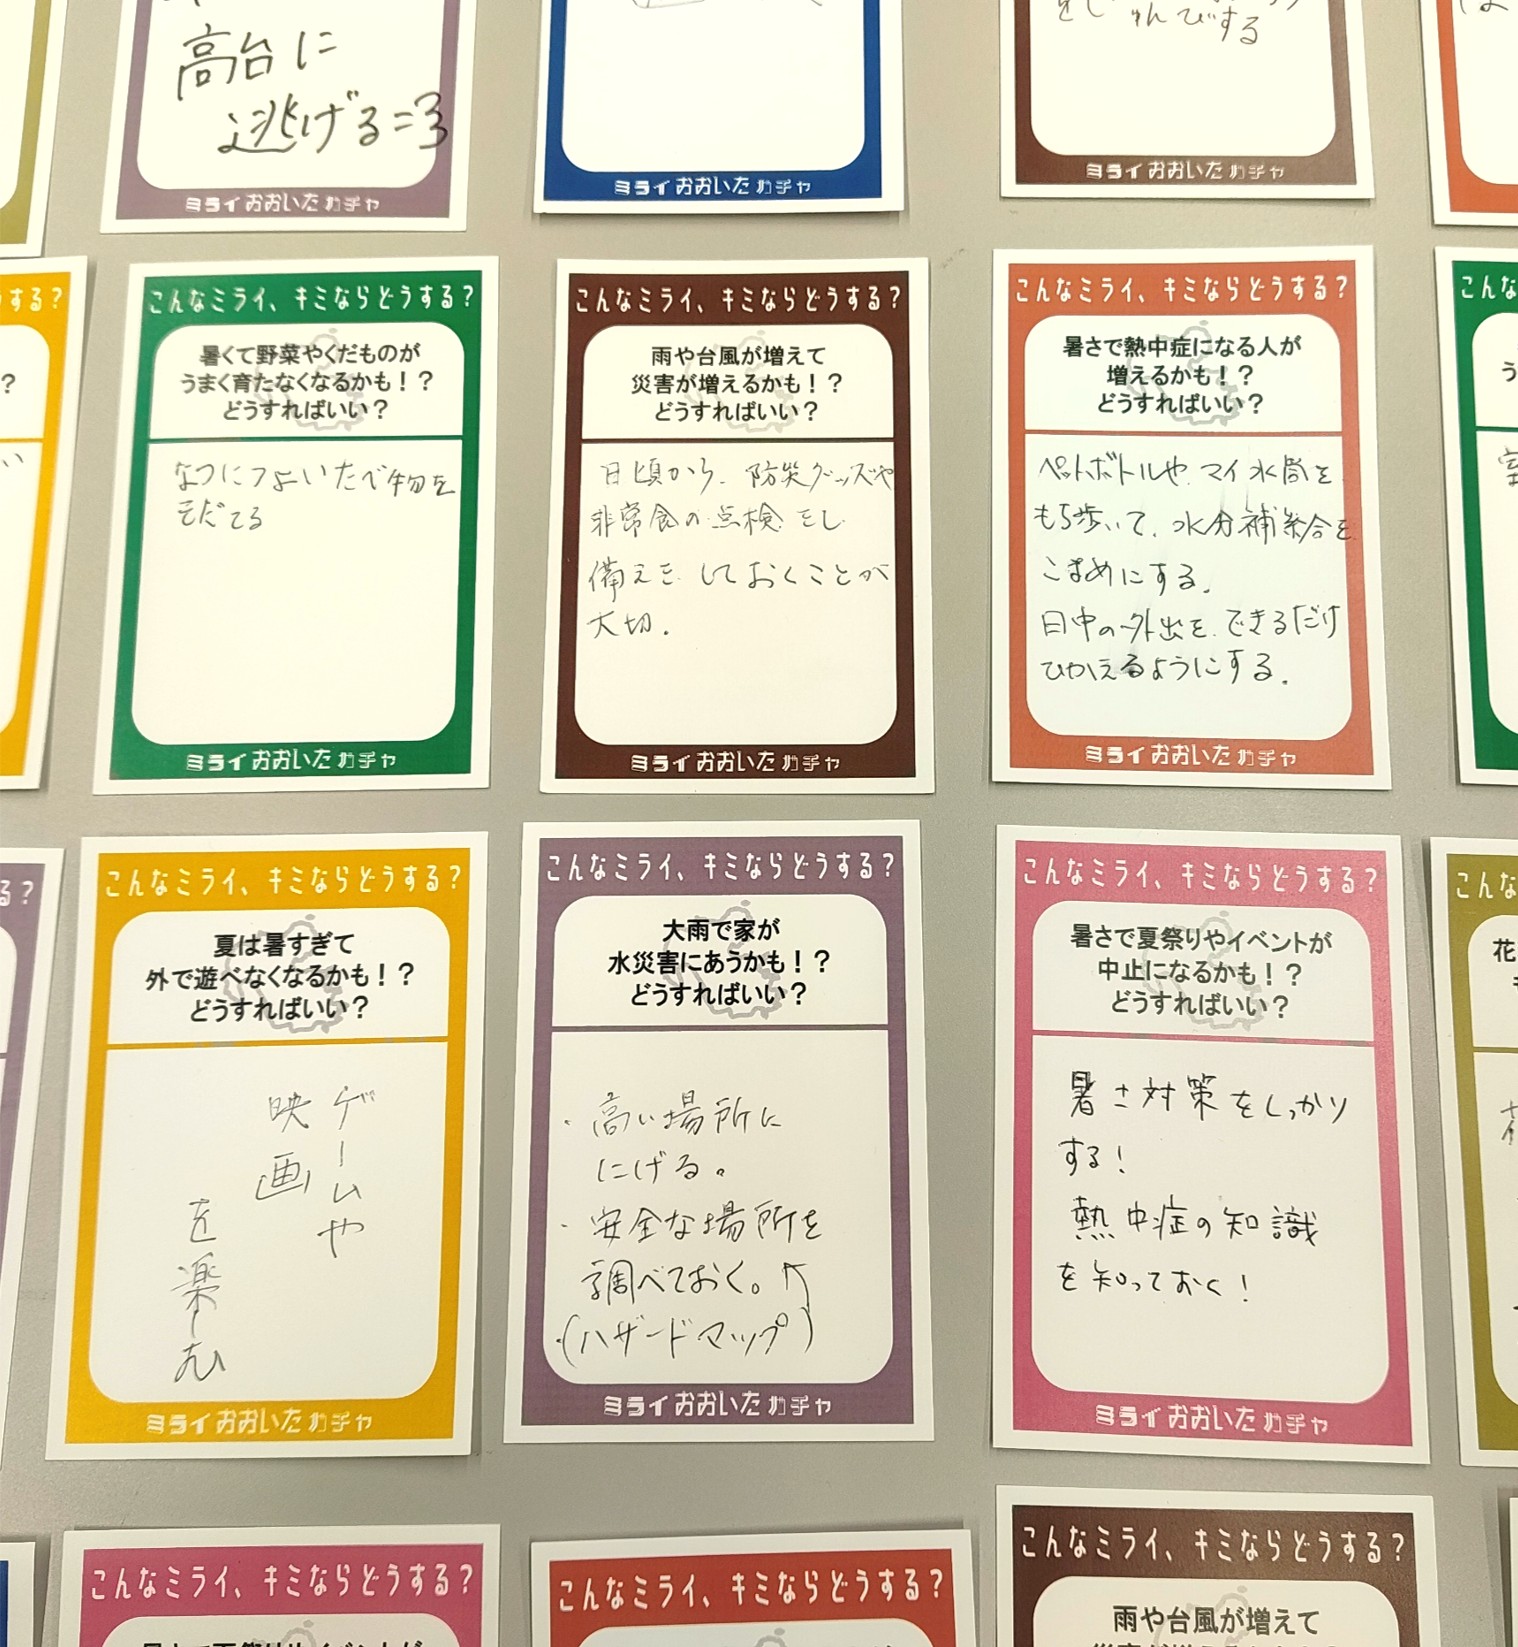 高台に
逃げる=3
ミライおおいたガチャ
ミライおおいたガチャ
んびする
ミライおおいたガチャ
する?
?
こんなミライ、キミならどうする?
暑くて野菜やくだものが
うまく育たなくなるかも!?
どうすればいい?
なつにつよいたべ物を
そだてる
ミライおおいたガチャ
こんなミライ、キミならどうする?
雨や台風が増えて
災害が増えるかも!?
どうすればいい?
日頃から、防災グッズや
非常食の点検をし
備えを、しておくことが
大切.
ミライおおいたガチャ
こんなミライ、キミならどうする?
暑さで熱中症になる人が
増えるかも!?
どうすればいい?
ペットボトルや、マイ水筒を
もち歩いて、水分補給を
こまめにする.
日中の外出を、できるだけ
ひかえるようにする.
ミライおおいたガチャ
こんな
う
る?
こんなミライ、キミならどうする?
夏は暑すぎて
外で遊べなくなるかも!?
どうすればいい?
ゲームや
映画
を楽しむ
ミライおおいたガチャ
こんなミライ、キミならどうする?
大雨で家が
水災害にあうかも!?
どうすればいい?
・高い場所に
にげる。
・安全な場所を
調べておく。↑
・(ハザードマップ)
ミライおおいたガチャ
こんなミライ、キミならどうする?
暑さで夏祭りやイベントが
中止になるかも!?
どうすればいい?
暑さ対策をしっかり
する!
熱中症の知識
を知っておく!
ミライおおいたガチャ
こんな
花
こんなミライ、キミならどうする?
暑さで夏祭りやイベントが
こんなミライ、キミならどうする?
こんなミライ、キミならどうする?
雨や台風が増えて